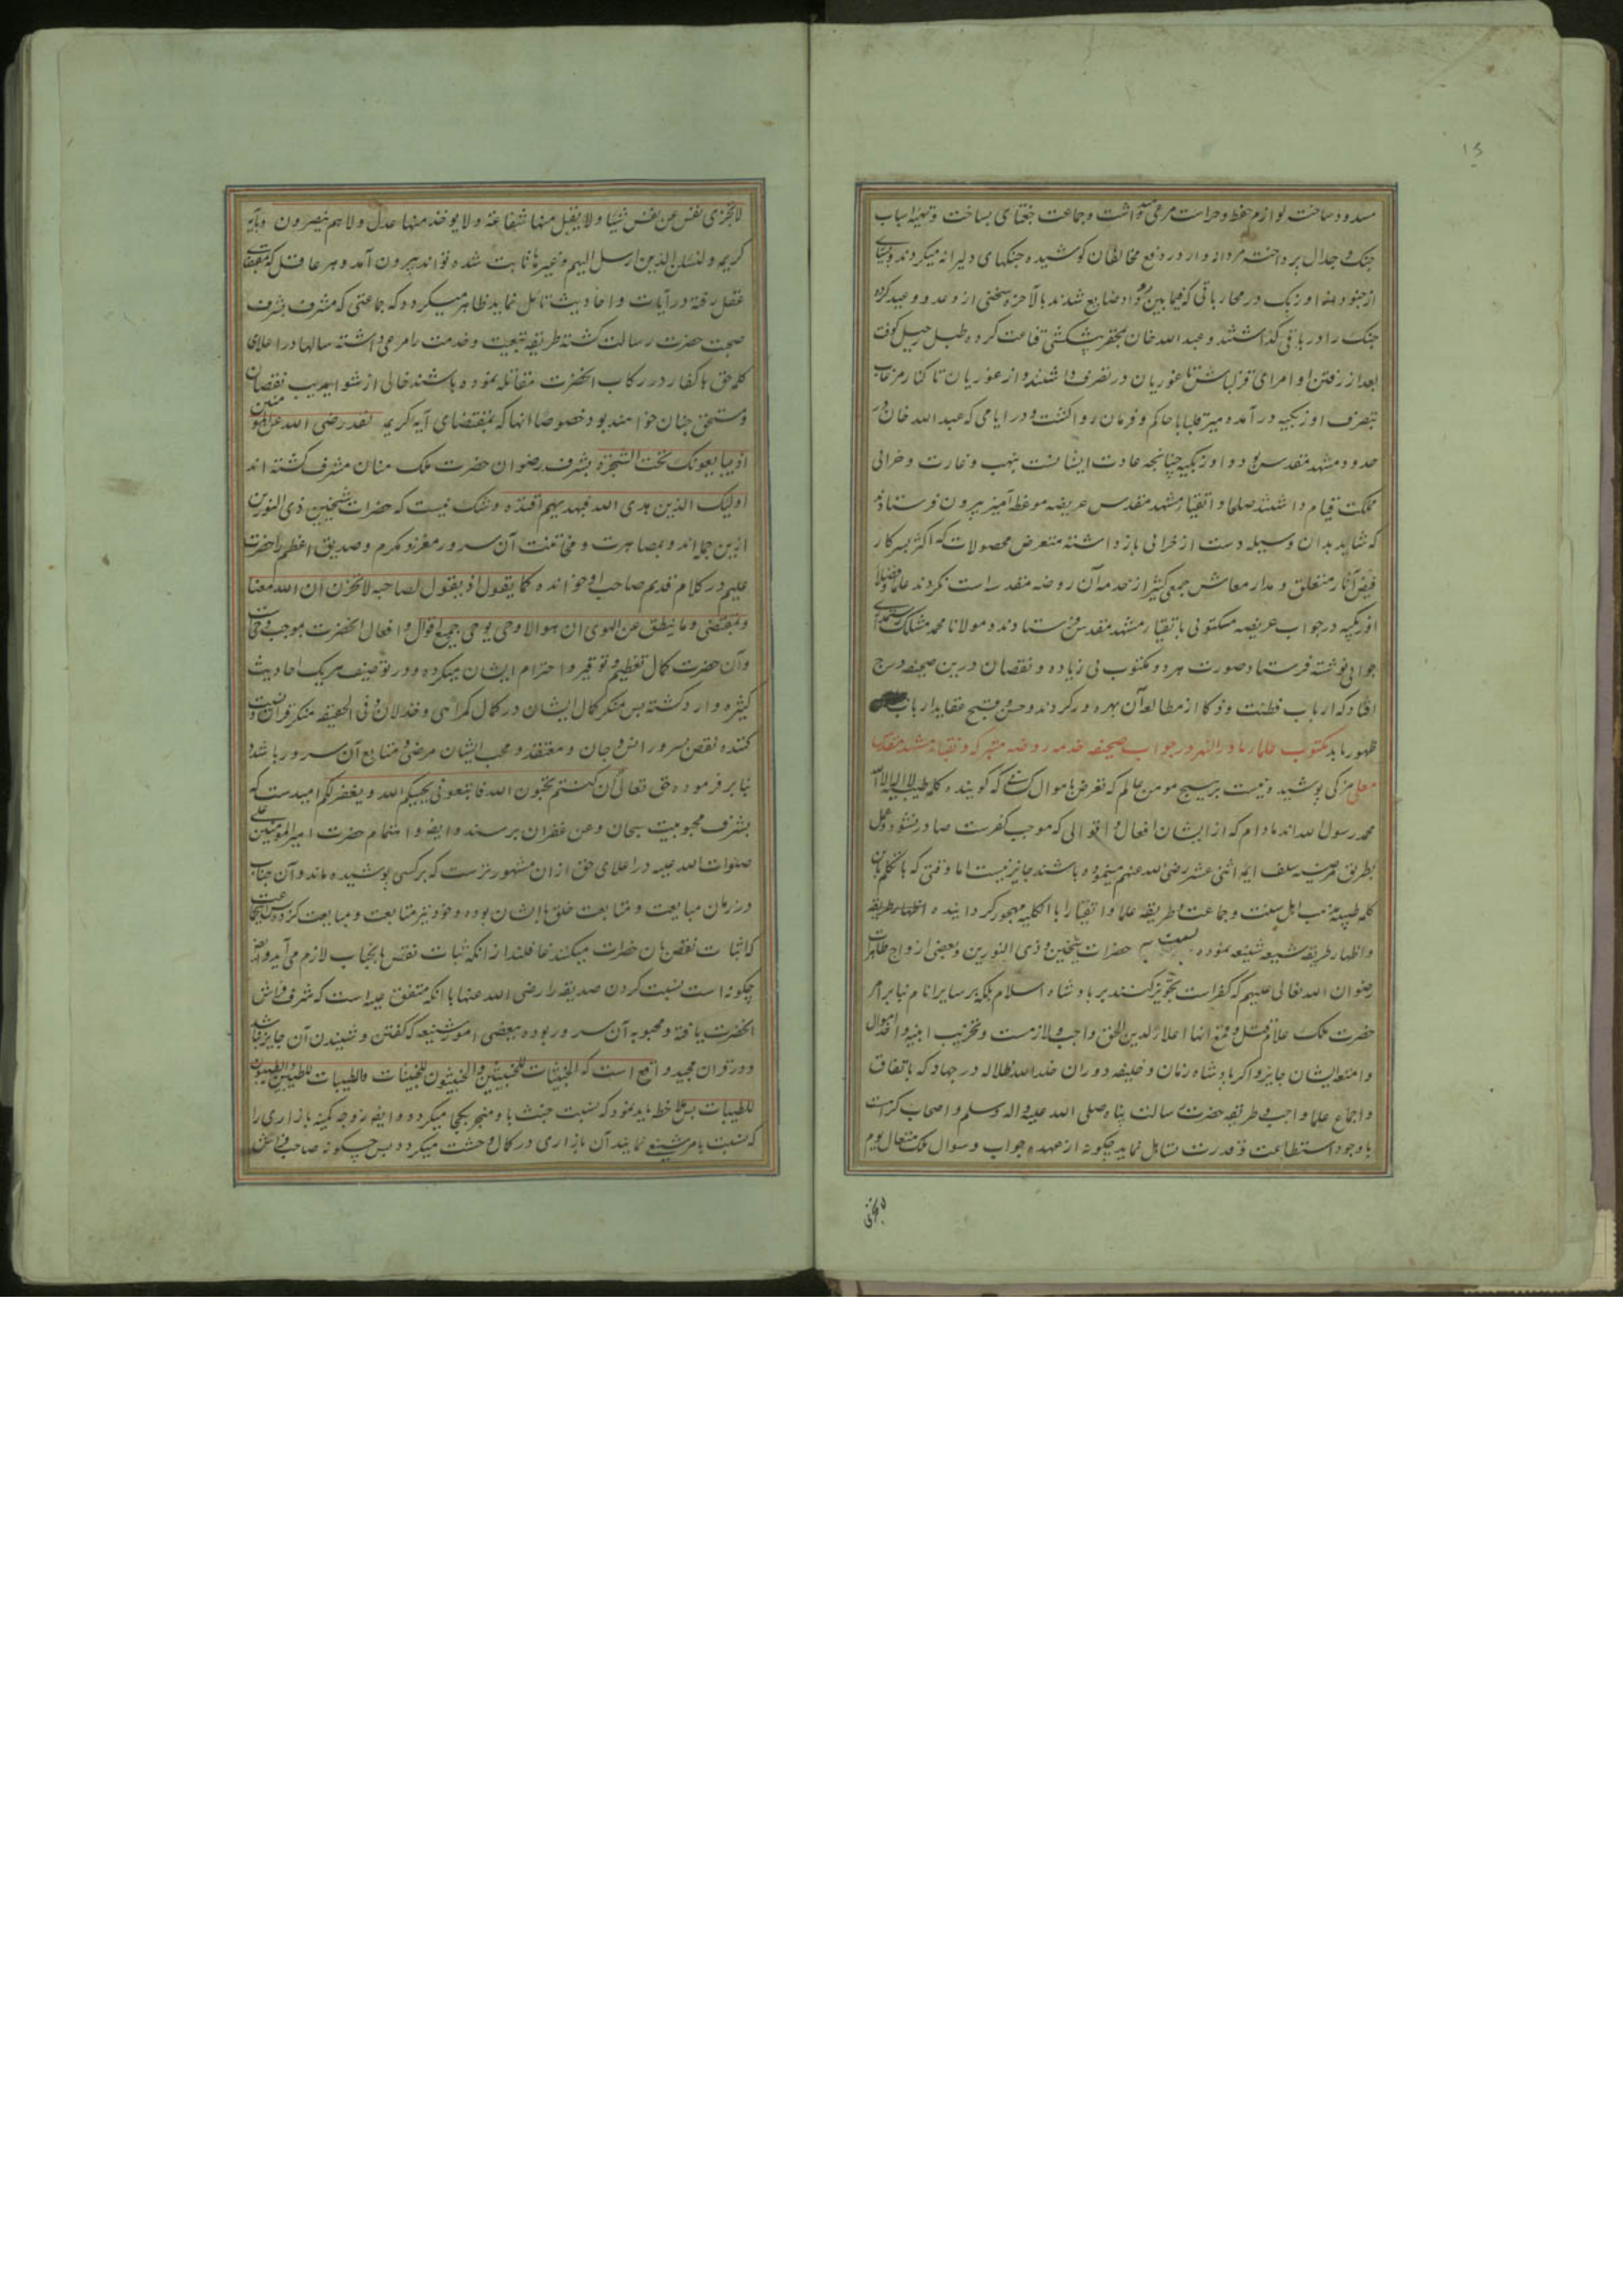 ۱۵
مسدود ساخته لوازم حفظ و حراست مرعی داشت و جماعت جغتای بساخت و تهیه اسباب
جنک و جدال پرداخته مردانه وار در دفع مخالفان کوشیده جنکهای دلیرانه میکردند و بسیاری
از جنود اوزبک در محارباتی که فیمابین رو داد ضایع شدند بالآخره سخنی از وعد و وعید کرده
جنک را در باقی کذاشتند و عبدالله خان بمحقر پیشکشی قناعت کرده طبل رحیل کوفت
بعد از رفتن او امرای قزلباش تا غوریان در تصرف داشتند و از غوریان تا کنار مرغاب
بتصرف اوزبکیه در آمده میر قلبابا حاکم و فرمان روا کشت و در ایامی که عبدالله خان در
حدود مشهد مقدس بود و اوزبکیه چنانچه عادت ایشانست بنهب و غارت و خرابی
مملکت قیام داشتند صلحا و اتقیاء مشهد مقدس عریضه موعظه آمیز بیرون فرستادند
که شاید بدان وسیله دست از خرابی باز داشته متعرض محصولات که اکثر بسرکار
فیض آثار متعلق و مدار معاش جمعی کثیر از خدمه آن روضه مقدسه است نکردند علما و فضلاء
اوزبکیه در جواب عریضه مکتوبی باتقیاء مشهد مقدس فرستادند و مولانا محمد مشکک رستمداری
جوابی نوشته فرستاد صورت هر دو مکتوب بی زیاده و نقصان درین صحیفه درج
افتاد که ارباب فطنت و ذکا از مطالعه آن بهره ور کردند و حسن و قبح عقاید ارباب
ظهور یابد مکتوب علماء ماوراءالنهر در جواب صحیفه خدمه روضه متبرکه و نقباء مشهد مقدس
معلی مزکی پوشیده نیست بر هیچ مومن عالم که تعرض باموال کسانی که کوینده کلمه طیبه لا اله الا الله
محمد رسول الله اند مادام که از ایشان افعال و اقوالی که موجب کفرست صادر نشود و عمل
بطریق مرضیه سلف ایمه اثنی عشر رضی الله عنهم مینموده باشند جایز نیست اما وقتی که با تکلم باین
کلمه طیبه مذهب اهل سنت و جماعت و طریقه علما و اتقیا را بالکلیه مهجور کردانیده اظهار طریقه
و اظهار طریقه شیعه شنیعه نموده نسبت به حضرات شیخین و ذی النورین و بعضی ازواج طاهرات
رضوان الله تعالی علیهم که کفر است تجویز کنند بر پادشاه اسلام بلکه بر سایر انام بنا بر امر
حضرت ملک علام قتل و قمع آنها اعلاء لدین الحق واجب و لازمست و تخریب ابنیه و اخذ اموال
و امتعه ایشان جایز و اکر پادشاه زمان و خلیفه دوران خلد الله ظلاله در جهاد که باتفاق
و اجماع علما واجب و طریقه حضرت رسالت پناه صلی الله علیه و اله و سلم و اصحاب کرامست
با وجود استطاعت و قدرت تساهل نماید چکونه از عهده جواب و سوال ملک متعال یوم
لا تجزی
لا تجزی نفس عن نفس شیئا و لا یقبل منها شفاعة و لا یوخذ منها عدل و لا هم ینصرون و بآیه
کریمه و لنسئلن الذین ارسل الیهم و غیرها ثابت شده تواند بیرون آمد و هر عاقل که بمقتضای
عقل رفته در آیات و احادیث تامل نماید ظاهر میکردد که جماعتی که مشرف بشرف
صحبت حضرت رسالت کشته طریقه تبعیت و خدمت را مرعی داشته سالها در اعلای
کلمه حق با کفار در رکاب آنحضرت مقاتله نموده باشند خالی از شوایب ریب نقصان
و مستحق جنان خواهند بود خصوصا آنها که بمقتضای آیه کریمه لقد رضی الله عن المومنین
اذ یبایعونک تحت الشجرة بشرف رضوان حضرت ملک منان مشرف کشته اند
اولیک الذین هدی الله فبهدیهم اقتده و شک نیست که حضرات شیخین ذی النورین
ازین جمله اند و بمصاهرت و مخاتنت آن سرور معزز و مکرم و صدیق اعظم را حضرت
علیم در کلام قدیم صاحب او خوانده کما یقول اذ یقول لصاحبه لا تحزن ان الله معنا
و بمقتضی و ما ینطق عن الهوی ان هو الا وحی یوحی جمیع اقوال و افعال آنحضرت بموجب وحیست
و آن حضرت کمال تعظیم و توقیر و احترام ایشان میکرده و در توصیف هر یک احادیث
کثیره وارد کشته پس منکر کمال ایشان در کمال کمراهی و خذلان و فی الحقیقه منکر قرآن و نسبت
کننده نقص بسرور انس و جان و معتقد و محب ایشان مرضی و متابع آن سرور باشد
بنابر فرموده حق تعالی ان کنتم تحبون الله فاتبعونی یحببکم الله و یغفر لکم امیدست که
بشرف محبوبیت سبحان و عن غفران برسند و ایضا اهتمام حضرت امیرالمؤمنین علی
صلوات الله علیه در اعلای حق از آن مشهورترست که بر کسی پوشیده ماند و آن جناب
در زمان مبایعت و متابعت خلق با ایشان بوده و خود نیز متابعت و مبایعت کرده پس جماعت
که اثبات نقص بآن حضرات میکنند غافلند از انکه اثبات نقص بآنجناب لازم می آید و ایضا
چکونه است نسبت کردن صدیقه را رضی الله عنها با انکه متفق علیه است که شرف فراش
آنحضرت یافته و محبوبه آن سرور بوده ببعضی امور شنیعه که کفتن و شنیدن آن جایز نباشد
و در قرآن مجید واقع است که الخبیثات للخبیثین و الخبیثون للخبیثات و الطیبات للطیبین و الطیبون
للطیبات پس ملاحظه باید نمود که نسبت خبث باو منجر بکجا میکردد و ایضا زوجه کمینه بازاری را
که نسبت بامر شنیع نمایند آن بازاری در کمال وحشت میکردد پس چکونه صاحب فراش